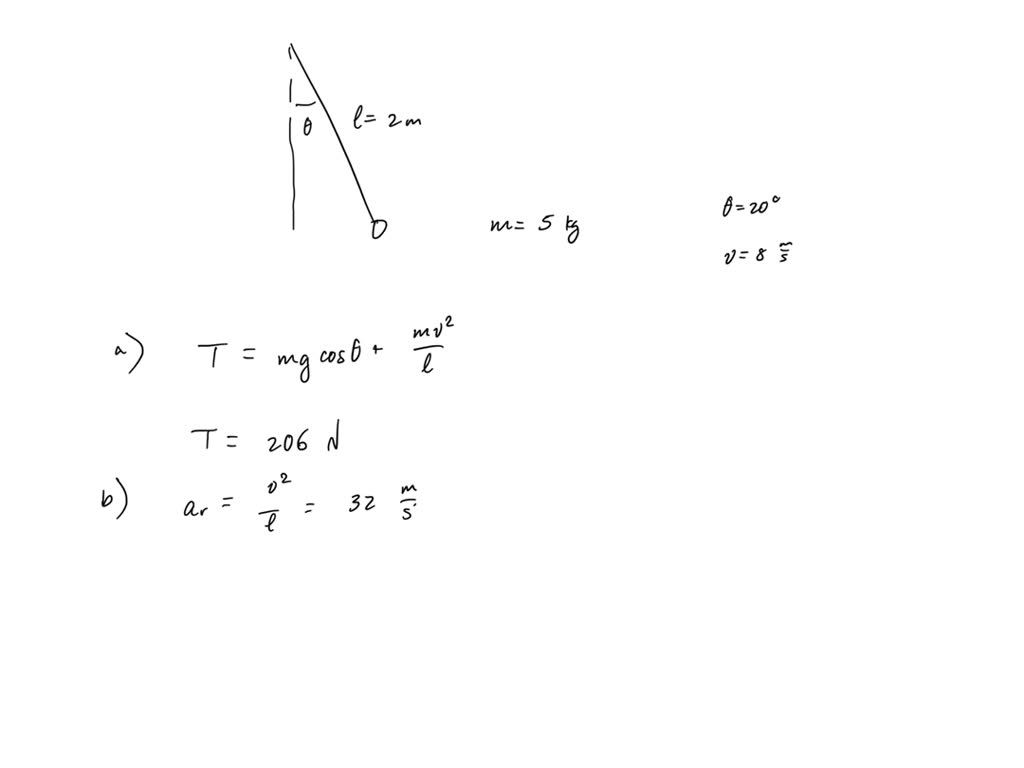 θ
l = 2 m
θ = 20°
m = 5 kg
v = 8 m/s
a) T = mg cos θ + mv²/l
T = 206 N
b) aᵣ = v²/l = 32 m/s